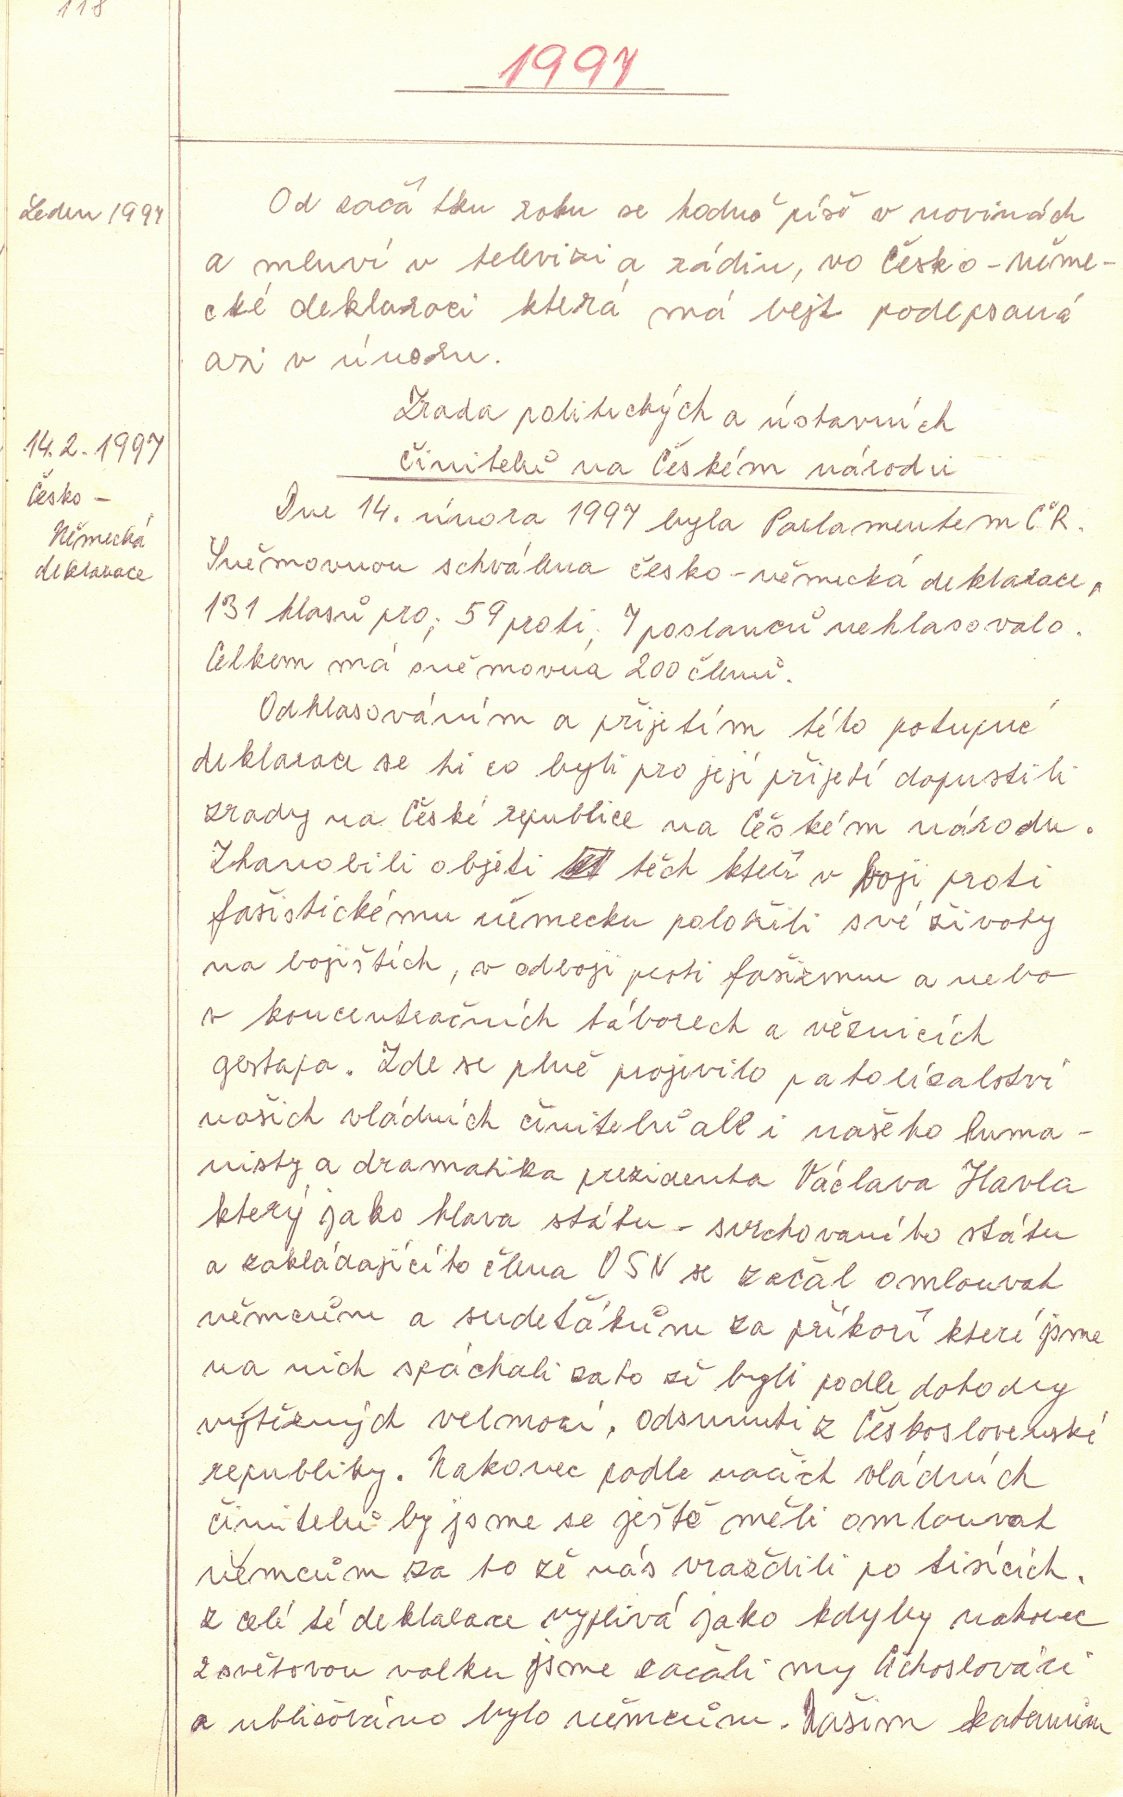 118
1997
Leden 1997
Od začátku roku se hodně píše v novinách
a mluví v televizi a rádiu, vo Česko-něme-
cké deklaraci která má bejt podepsaná
azi v únoru.
Zrada politických a ústavních
činitelů na Českém národu
14.2.1997
Česko -
Německá
deklarace
Dne 14. února 1997 byla Parlamentem ČR.
Sněmovnou schválena česko-německá deklarace,
131 hlasů pro; 59 proti; 7 poslanců nehlasovalo.
Celkem má sněmovna 200 členů.
Odhlasováním a přijetím této potupné
deklarace se ti co byli pro její přijetí dopustili
zrady na České republice na Českém národu.
Zhanobili objeti těch kteří v boji proti
fašistickému německu položili své životy
na bojištích, v odboji proti fašizmu a nebo
v koncentračních táborech a věznicích
gestapa. Zde se plně projevilo patolízalství
našich vládních činitelů ale i našeho huma-
nisty a dramatika prezidenta Václava Havla
který jako hlava státu - svrchovaního státu
a zakládajícího člena OSN se začal omlouvat
němcům a sudeťákům za příkoří které jsme
na nich spáchali zato zě byli podle dohody
vytězných velmocí, odsunuti z Československé
republiky. Nakonec podle našich vládních
činitelů by jsme se ještě měli omlouvat
němcům za to zě nás vraždili po tisících.
z celé té deklarace vyplivá jako kdyby nakonec
2 světovou valku jsme začali my Čechoslováci
a ubližováno bylo němcům. Našim